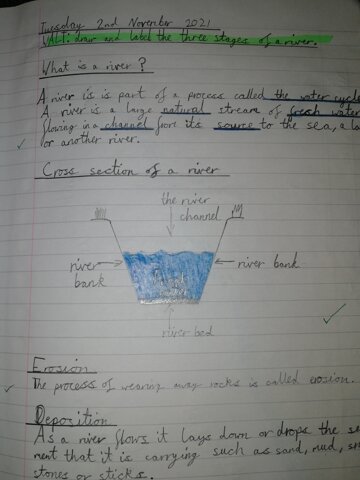 Tuesday 2nd November 2021
WALT: draw and label the three stages of a river.
What is a river?
A river is is part of a process called the water cycle
A river is a large natural stream of fresh water
flowing in a channel from its source to the sea, a la
or another river.
Cross section of a river
the river
channel
river
bank
river bank
river bed
Erosion
The process of wearing away rocks is called erosion.
Deposition
As a river flows it lays down or drops the se
ment that it is carrying such as sand, mud, sm
stones or sticks.